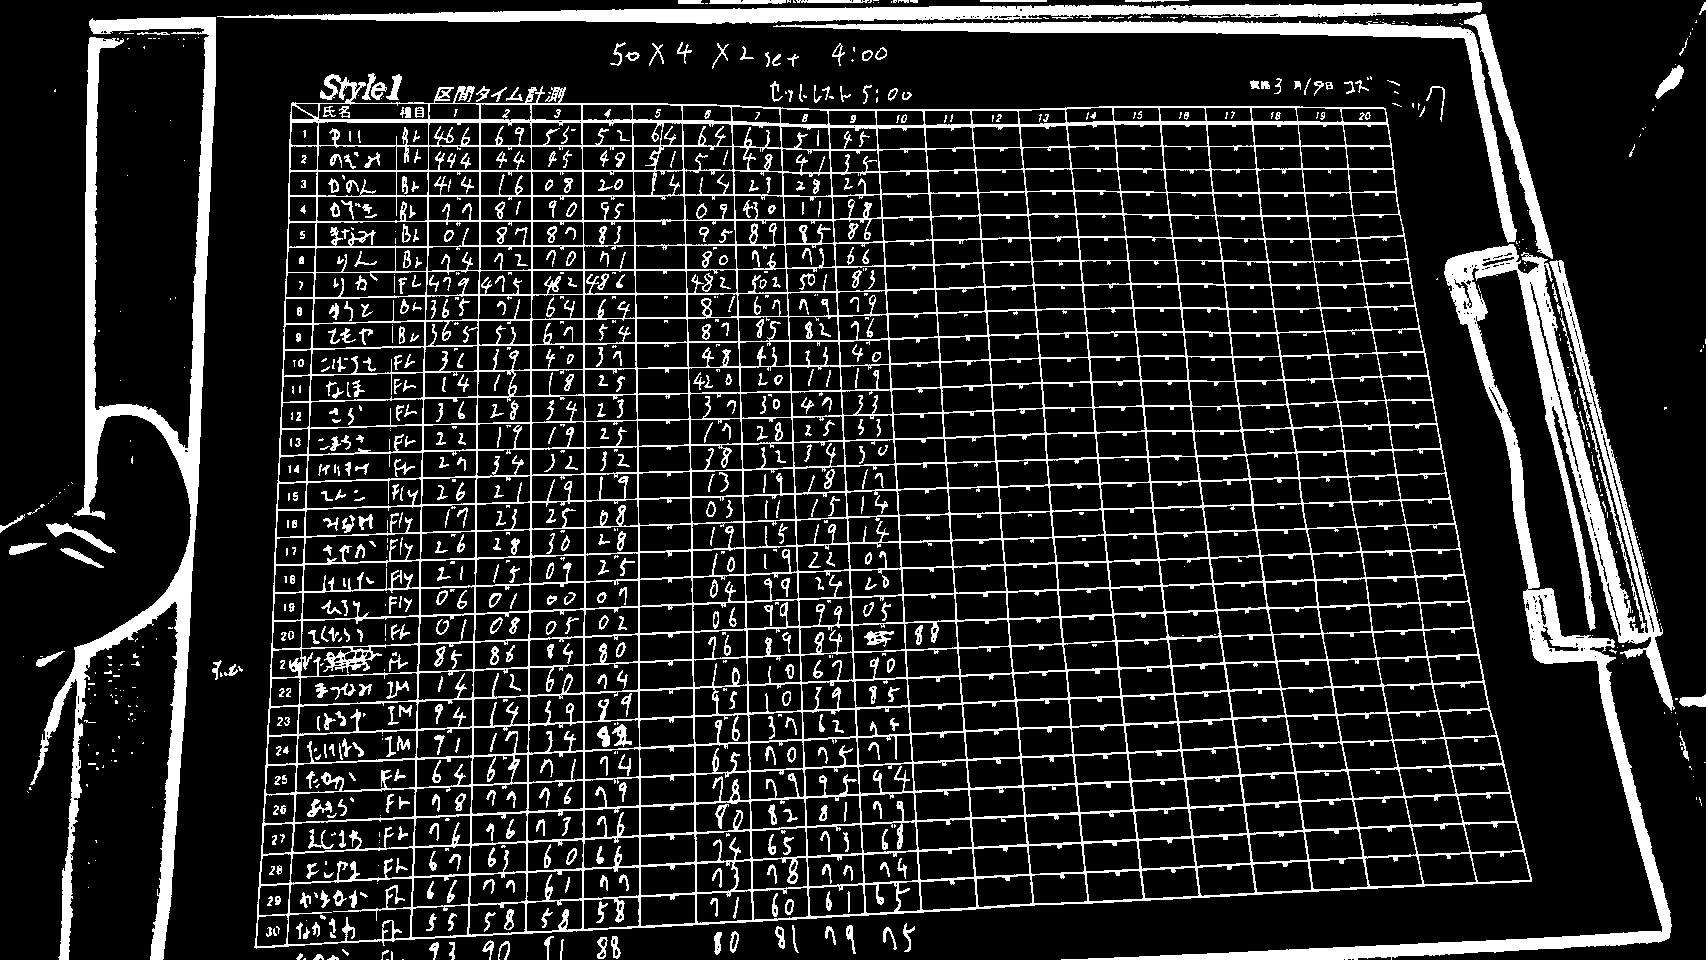 50×4 ×2set 4:00
Style1 区間タイム計測 セットレスト 5:00 3月19日
氏名 種目 1 2 3 4 5 6 7 8 9 10 11 12 13 14 15 16 17 18 19 20
1 Br 46 6 6 9 5 5 5 2 6 4 6 4 6 3 5 1 4 5
2 のぞみ Br 44 4 4 4 4 5 4 8 5 1 5 1 4 8 4 1 3 5
3 かのん Br 41 4 1 6 0 8 2 0 1 4 1 4 2 3 2 8 2 7
4 かずき Br 7 7 8 1 9 0 9 5 0 9 43 0 1 1 9 8
5 まなみ Br 0 1 8 7 8 7 8 3 9 5 8 9 8 5 8 6
6 りん Br 7 4 7 2 7 0 7 1 8 0 7 6 7 3 6 6
7 りか FL 47 9 47 5 48 2 48 6 48 2 50 2 50 1 8 3
8 ゆうと Br 36 5 7 1 6 4 6 4 8 1 6 7 7 9 7 9
9 ともや Br 36 5 5 3 6 7 5 4 8 7 8 5 8 2 7 6
10 FL 3 6 3 9 4 0 3 7 4 8 4 3 3 3 4 0
11 なほ FL 1 4 1 6 1 8 2 5 42 0 2 0 1 1 1 9
12 さら FL 3 6 2 8 3 4 2 3 3 7 3 0 4 7 3 3
13 FL 2 2 1 9 1 9 2 5 1 7 2 8 2 5 3 3
14 FL 2 7 3 4 3 2 3 2 3 8 3 2 3 4 3 0
15 Fly 2 6 2 1 1 9 1 9 1 3 1 9 1 8 1 7
16 Fly 1 7 2 3 2 5 0 8 0 3 1 1 1 5 1 4
17 さやか Fly 2 6 2 8 3 0 2 8 1 9 1 5 1 9 1 4
18 Fly 2 1 1 5 0 9 2 5 1 0 1 9 2 2 0 7
19 Fly 0 6 0 1 0 0 0 7 0 4 9 9 2 4 2 0
20 FL 0 1 0 8 0 5 0 2 0 6 9 9 9 9 0 5
2 FL 8 5 8 6 8 4 8 0 7 6 8 9 8 4 8 8
22 IM 1 4 1 2 6 0 7 4 1 0 1 0 6 7 9 0
23 はるや IM 9 4 1 4 5 9 8 9 9 5 1 0 3 9 8 5
24 IM 9 1 1 7 3 4 9 6 3 7 6 2 7 4
25 FL 6 4 6 9 7 1 7 4 6 5 7 0 7 5 7 1
26 あきら FL 7 8 7 7 7 6 7 9 7 8 7 9 9 5 9 4
27 FL 7 6 7 6 7 3 7 6 8 0 8 2 8 1 7 9
28 FL 6 7 6 3 6 0 6 6 7 4 6 5 7 3 6 8
29 FL 6 6 7 7 6 1 7 7 7 3 7 8 7 7 7 4
30 ながさわ FL 5 5 5 8 5 8 5 8 7 1 6 0 6 1 6 5
FL 93 90 91 88 80 81 79 75